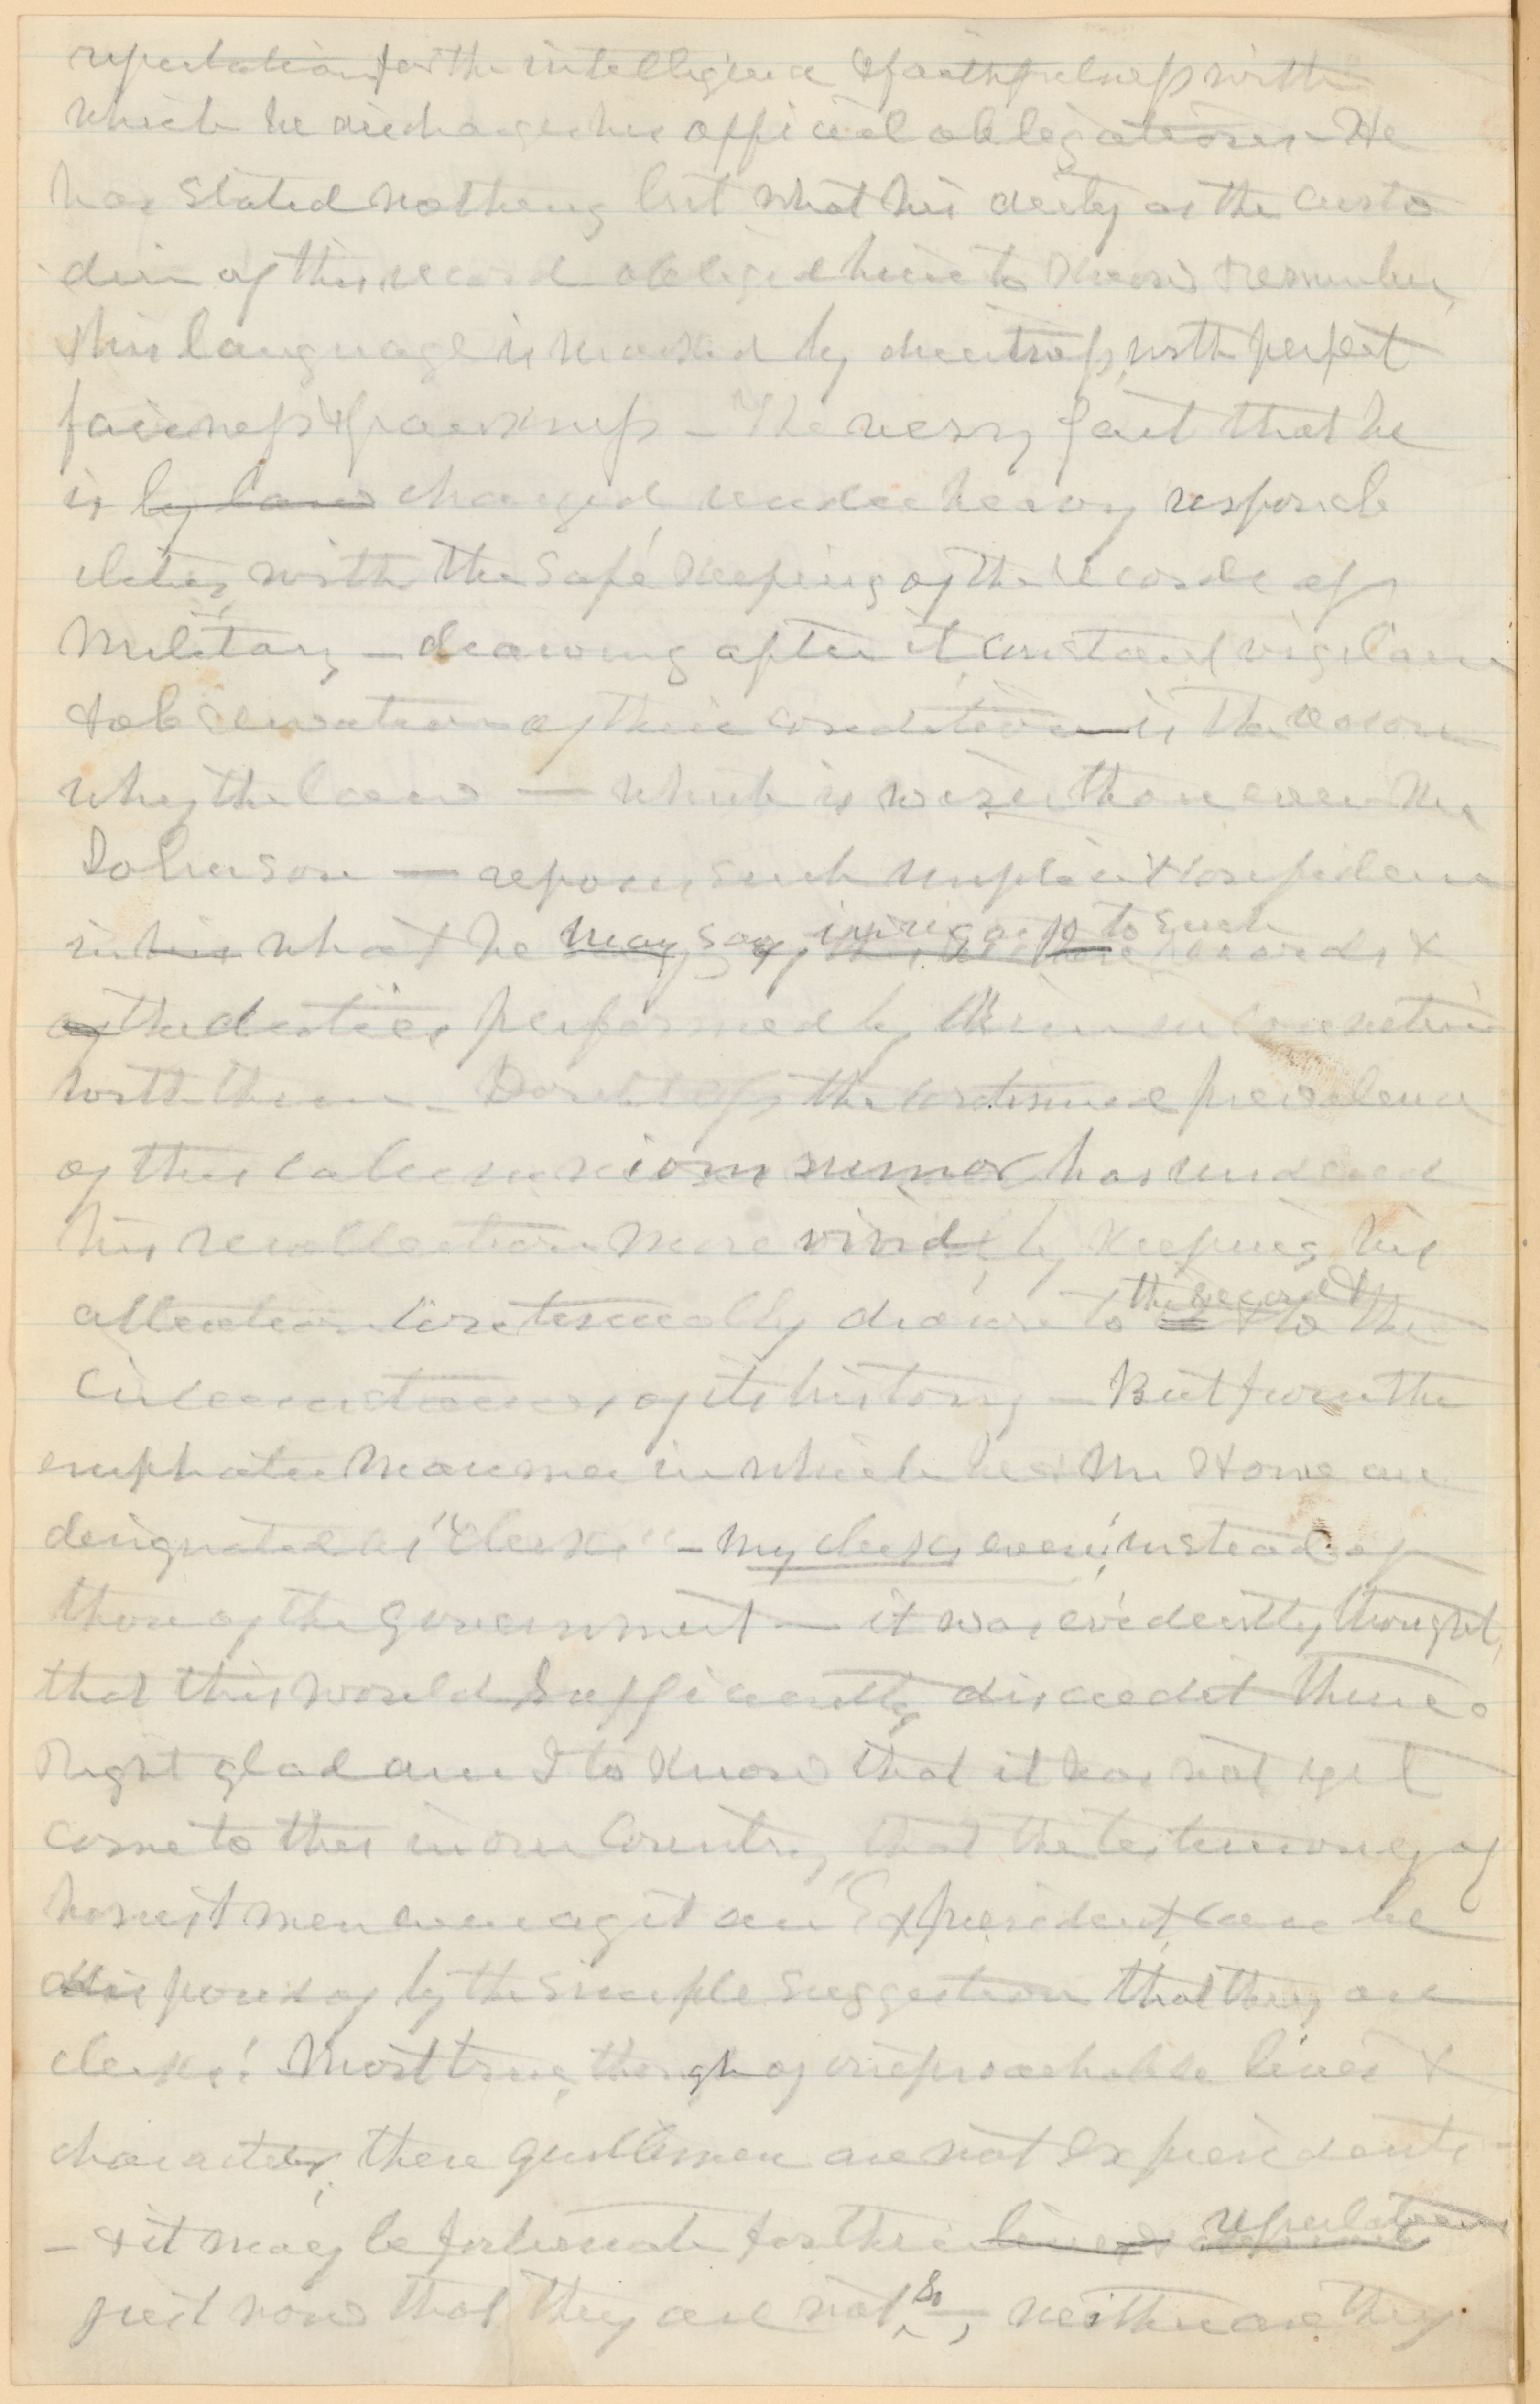 reputation for the intelligence & faithfulness with
which he discharges his official obligations - He
has stated nothing but what his duty as the custo
dian of this record obliged him to know & remember,
& his language is marked by directness, with perfect
fairness & frankness - The very fact that he
is by law charged under heavy responsib
ilities with the safe keeping of the records of
Military - drawing after it constant vigilance
& observation of their condition - is the reason
why the law - which is wiser than even Mr
Johnson - reposes such implicit confidence
in his what he may say in regard to such records &
of the duties performed by him in connection
with them - Doubtless the continued prevalence
of this calumnious rumor has rendered
his recollection more vivid, by keeping his
attention continually drawn to the record & to the
circumstances of its history - But from the
emphatic manner in which he & Mr Howe are
designated as "clerks" - my clerks, even, instead of
those of the Government - it was evidently thought,
that this would sufficiently discredit them.
Right glad am I to know that it has not yet
come to this in our Country, that the testimony of
honest men even agst an Ex president can be
disposed of by the simple suggestion that they are
clerks! Most true, though of irreproachable lives &
character, these gentlemen are not Ex presidents
- & it may be fortunate for their lives & reputations
just now that they are not so, neither are they